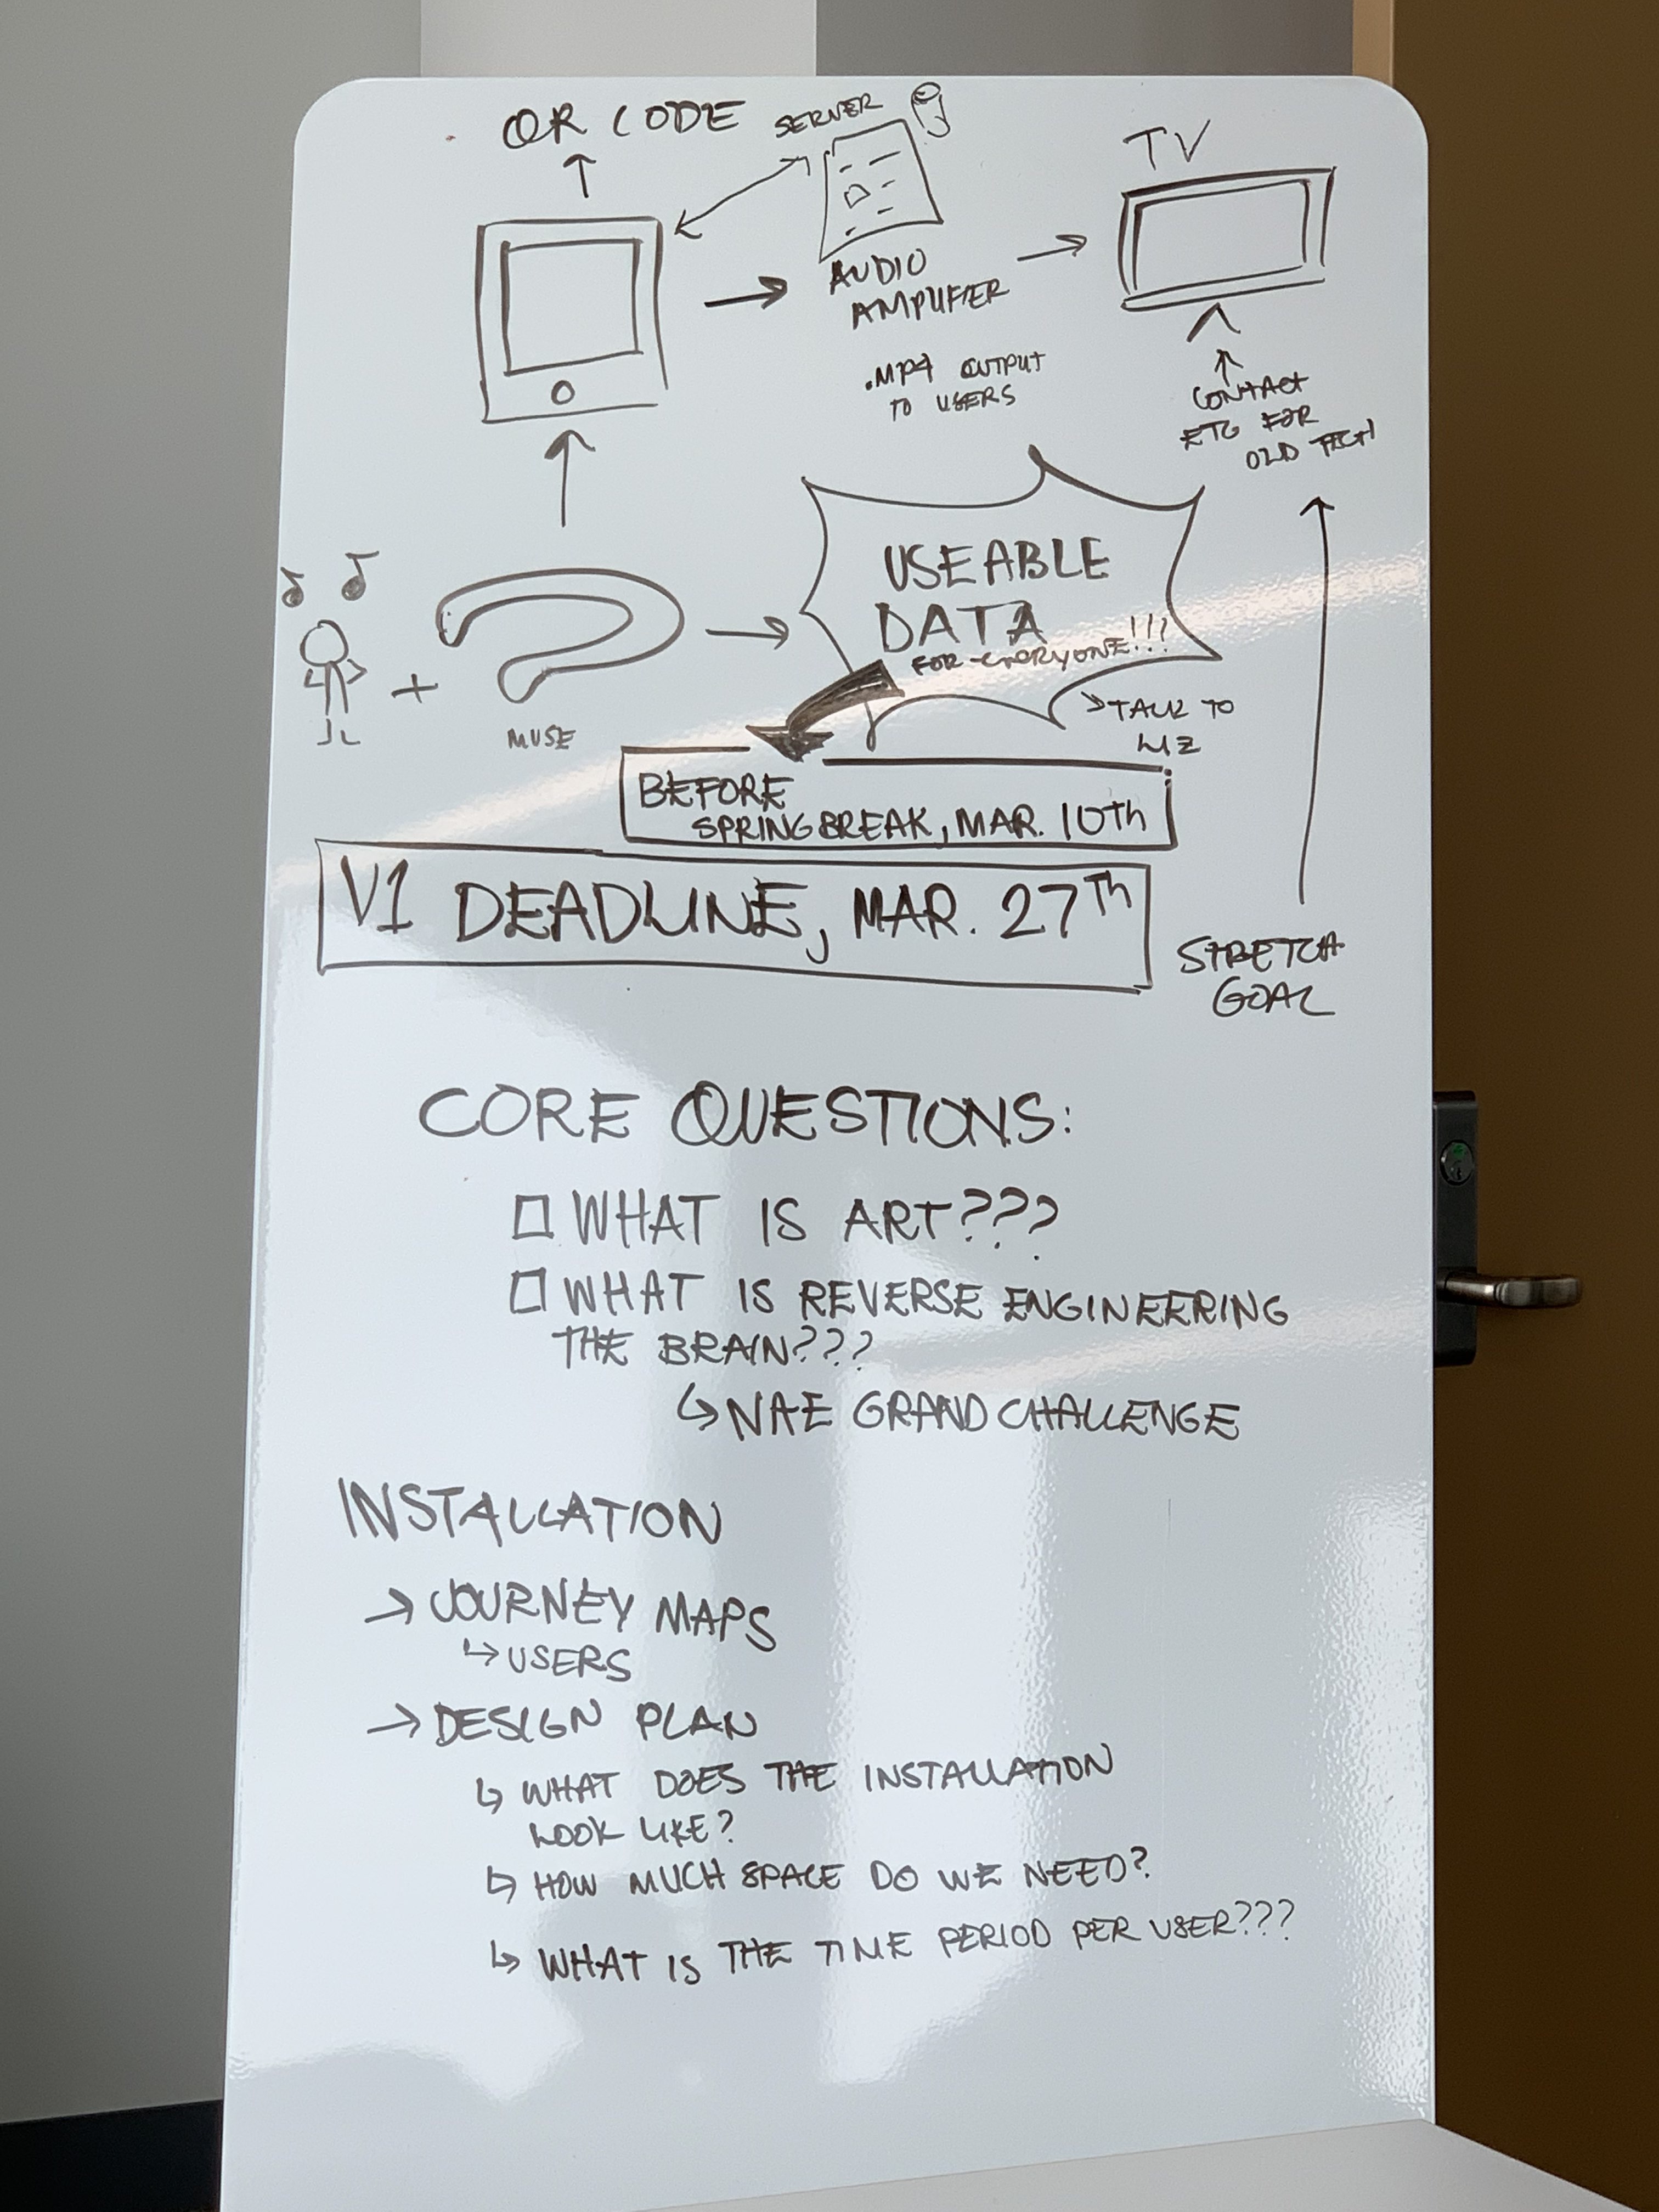 QR CODE
SERVER
TV
AUDIO
AMPLIFIER
.MP4 OUTPUT
TO USERS
CONTACT
ETG FOR
OLD TECH
USEABLE
DATA
FOR EVERYONE!!!
TALK TO
LIZ
MUSE
BEFORE
SPRING BREAK, MAR. 10TH
V1 DEADLINE, MAR. 27TH
STRETCH
GOAL
CORE QUESTIONS:
WHAT IS ART???
WHAT IS REVERSE ENGINEERING
THE BRAIN???
↳ NAE GRAND CHALLENGE
INSTALLATION
→ JOURNEY MAPS
↳ USERS
→ DESIGN PLAN
↳ WHAT DOES THE INSTALLATION
LOOK LIKE?
↳ HOW MUCH SPACE DO WE NEED?
↳ WHAT IS THE TIME PERIOD PER USER???